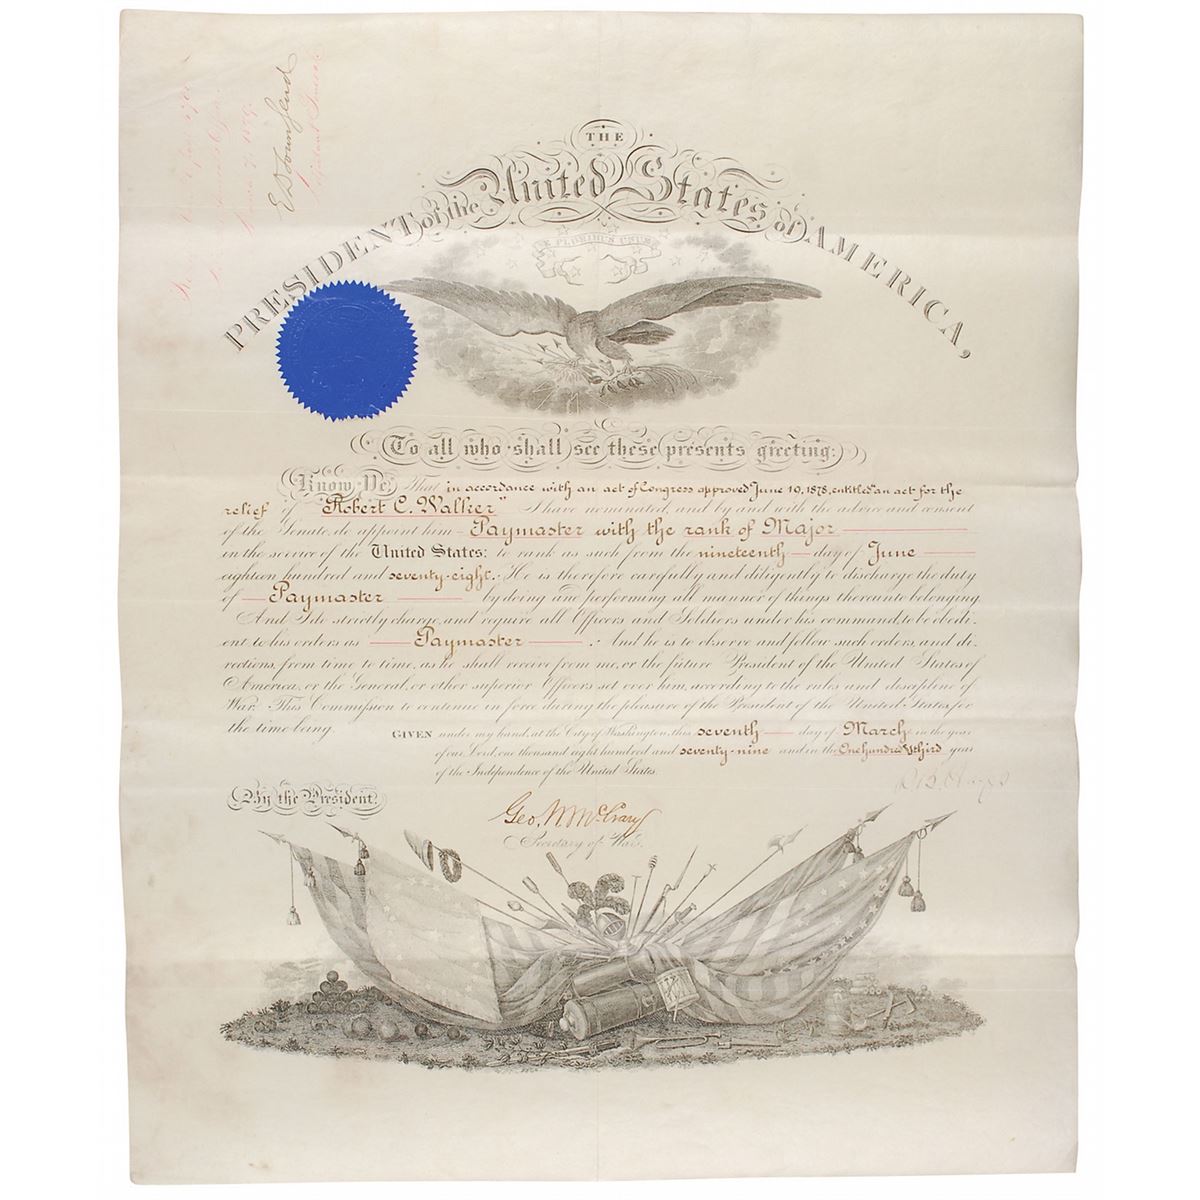 E D Townsend
THE
PRESIDENT of the United States of AMERICA,
E PLURIBUS UNUM
To all who shall see these presents greeting:
Know Ye, That in accordance with an act of Congress approved June 19, 1878, entitled "an act for the
relief of Robert C. Walker" I have nominated, and by and with the advice and consent
of the Senate, do appoint him Paymaster with the rank of Major
in the service of the United States: to rank as such from the nineteenth day of June
eighteen hundred and seventy-eight. He is therefore carefully and diligently to discharge the duty
of Paymaster by doing and performing all manner of things thereunto belonging.
And I do strictly charge, and require all Officers and Soldiers under his command, to be obedi-
ent to his orders as Paymaster. And he is to observe and follow such orders, and di-
rections, from time to time, as he shall receive from me, or the future President of the United States of
America, or the General, or other superior Officers set over him, according to the rules and discipline of
War. This Commission to continue in force during the pleasure of the President of the United States, for
the time being.
GIVEN under my hand, at the City of Washington, this seventh day of March in the year
of our Lord one thousand eight hundred and seventy-nine and in the One hundred & third year
of the Independence of the United States.
R B Hayes
By the President.
Geo. W. McCrary
Secretary of War.